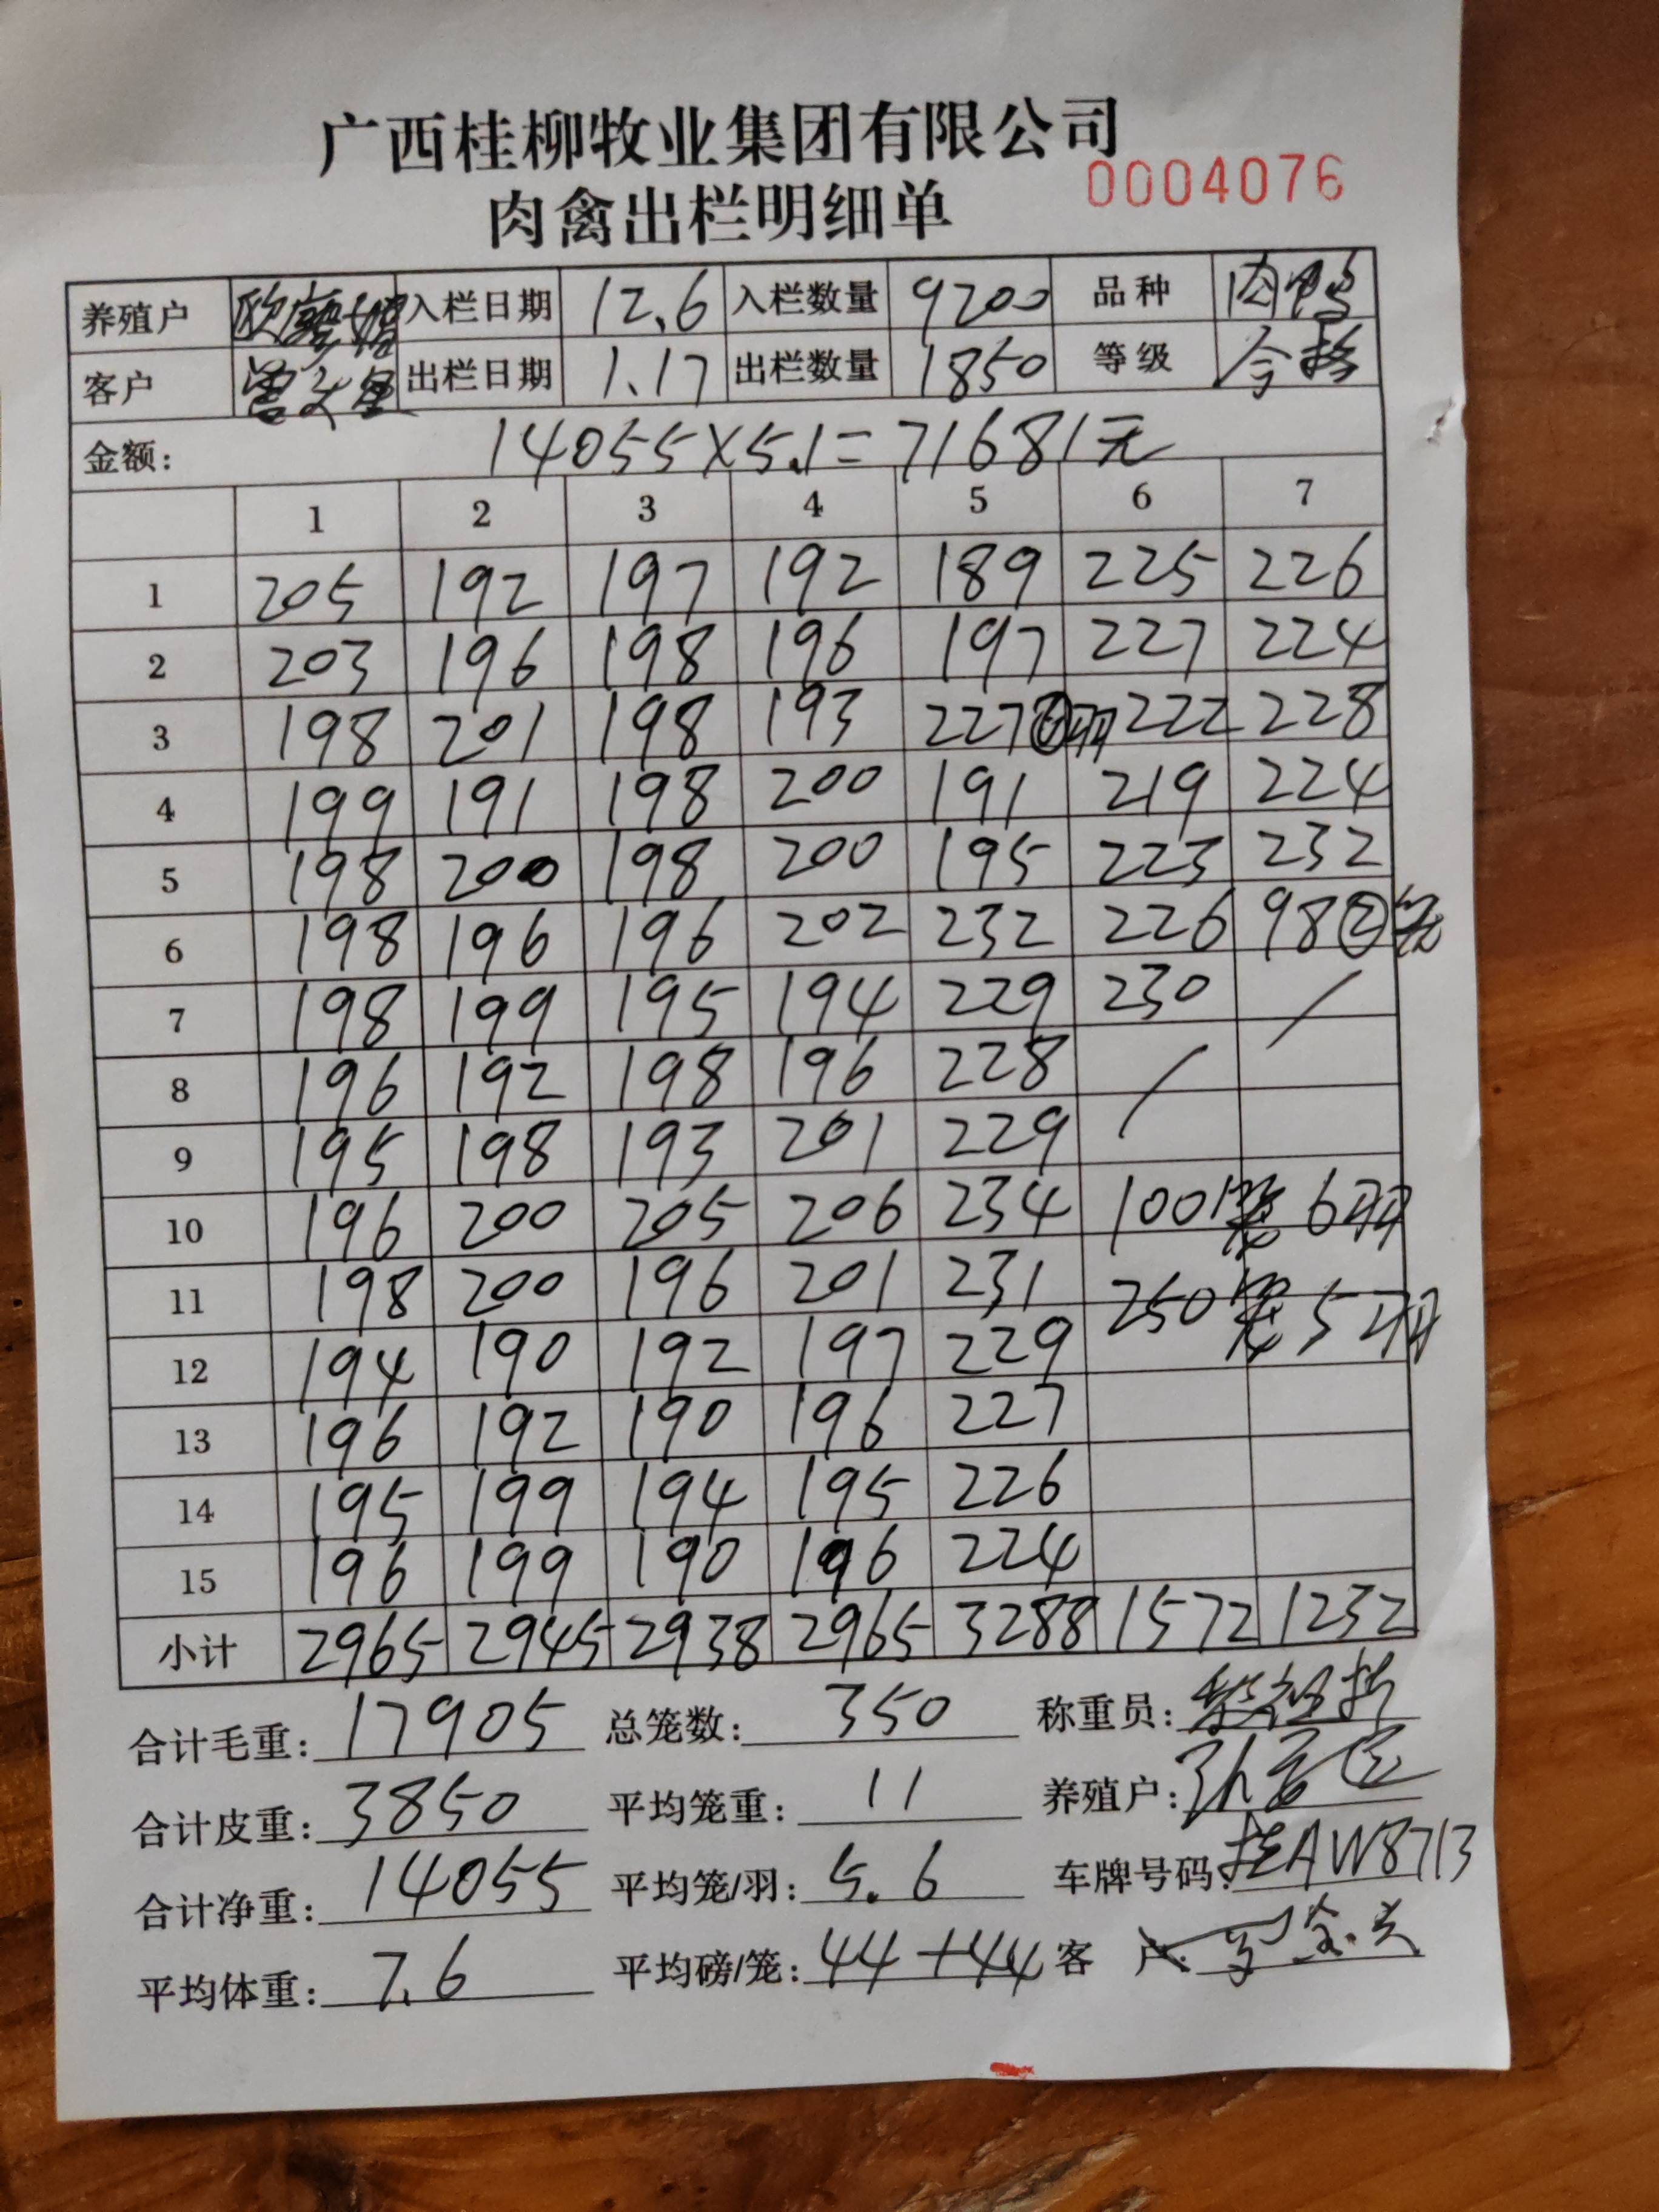 广西桂柳牧业集团有限公司
肉禽出栏明细单 0004076
养殖户 入栏日期 12.6 入栏数量 9200 品种 肉鸭
客户 出栏日期 1.17 出栏数量 1850 等级 合格
金额: 14055×5.1=71681元
1 2 3 4 5 6 7
1 205 192 197 192 189 225 226
2 203 196 198 196 197 227 224
3 198 201 198 193 227⑥羽 222 228
4 199 191 198 200 191 219 224
5 198 200 198 200 195 223 232
6 198 196 196 202 232 226 98②笼
7 198 199 195 194 229 230 /
8 196 192 198 196 228 /
9 195 198 193 201 229
10 196 200 205 206 234 100笼 6羽
11 198 200 196 201 231 250笼 5羽
12 194 190 192 197 229
13 196 192 190 196 227
14 195 199 194 195 226
15 196 199 190 196 224
小计 2965 2945 2938 2965 3288 1572 1232
合计毛重: 17905 总笼数: 350 称重员:
合计皮重: 3850 平均笼重: 11 养殖户:
合计净重: 14055 平均笼/羽: 5.6 车牌号码: 桂AW8713
平均体重: 7.6 平均磅/笼: 44+44 客 户: